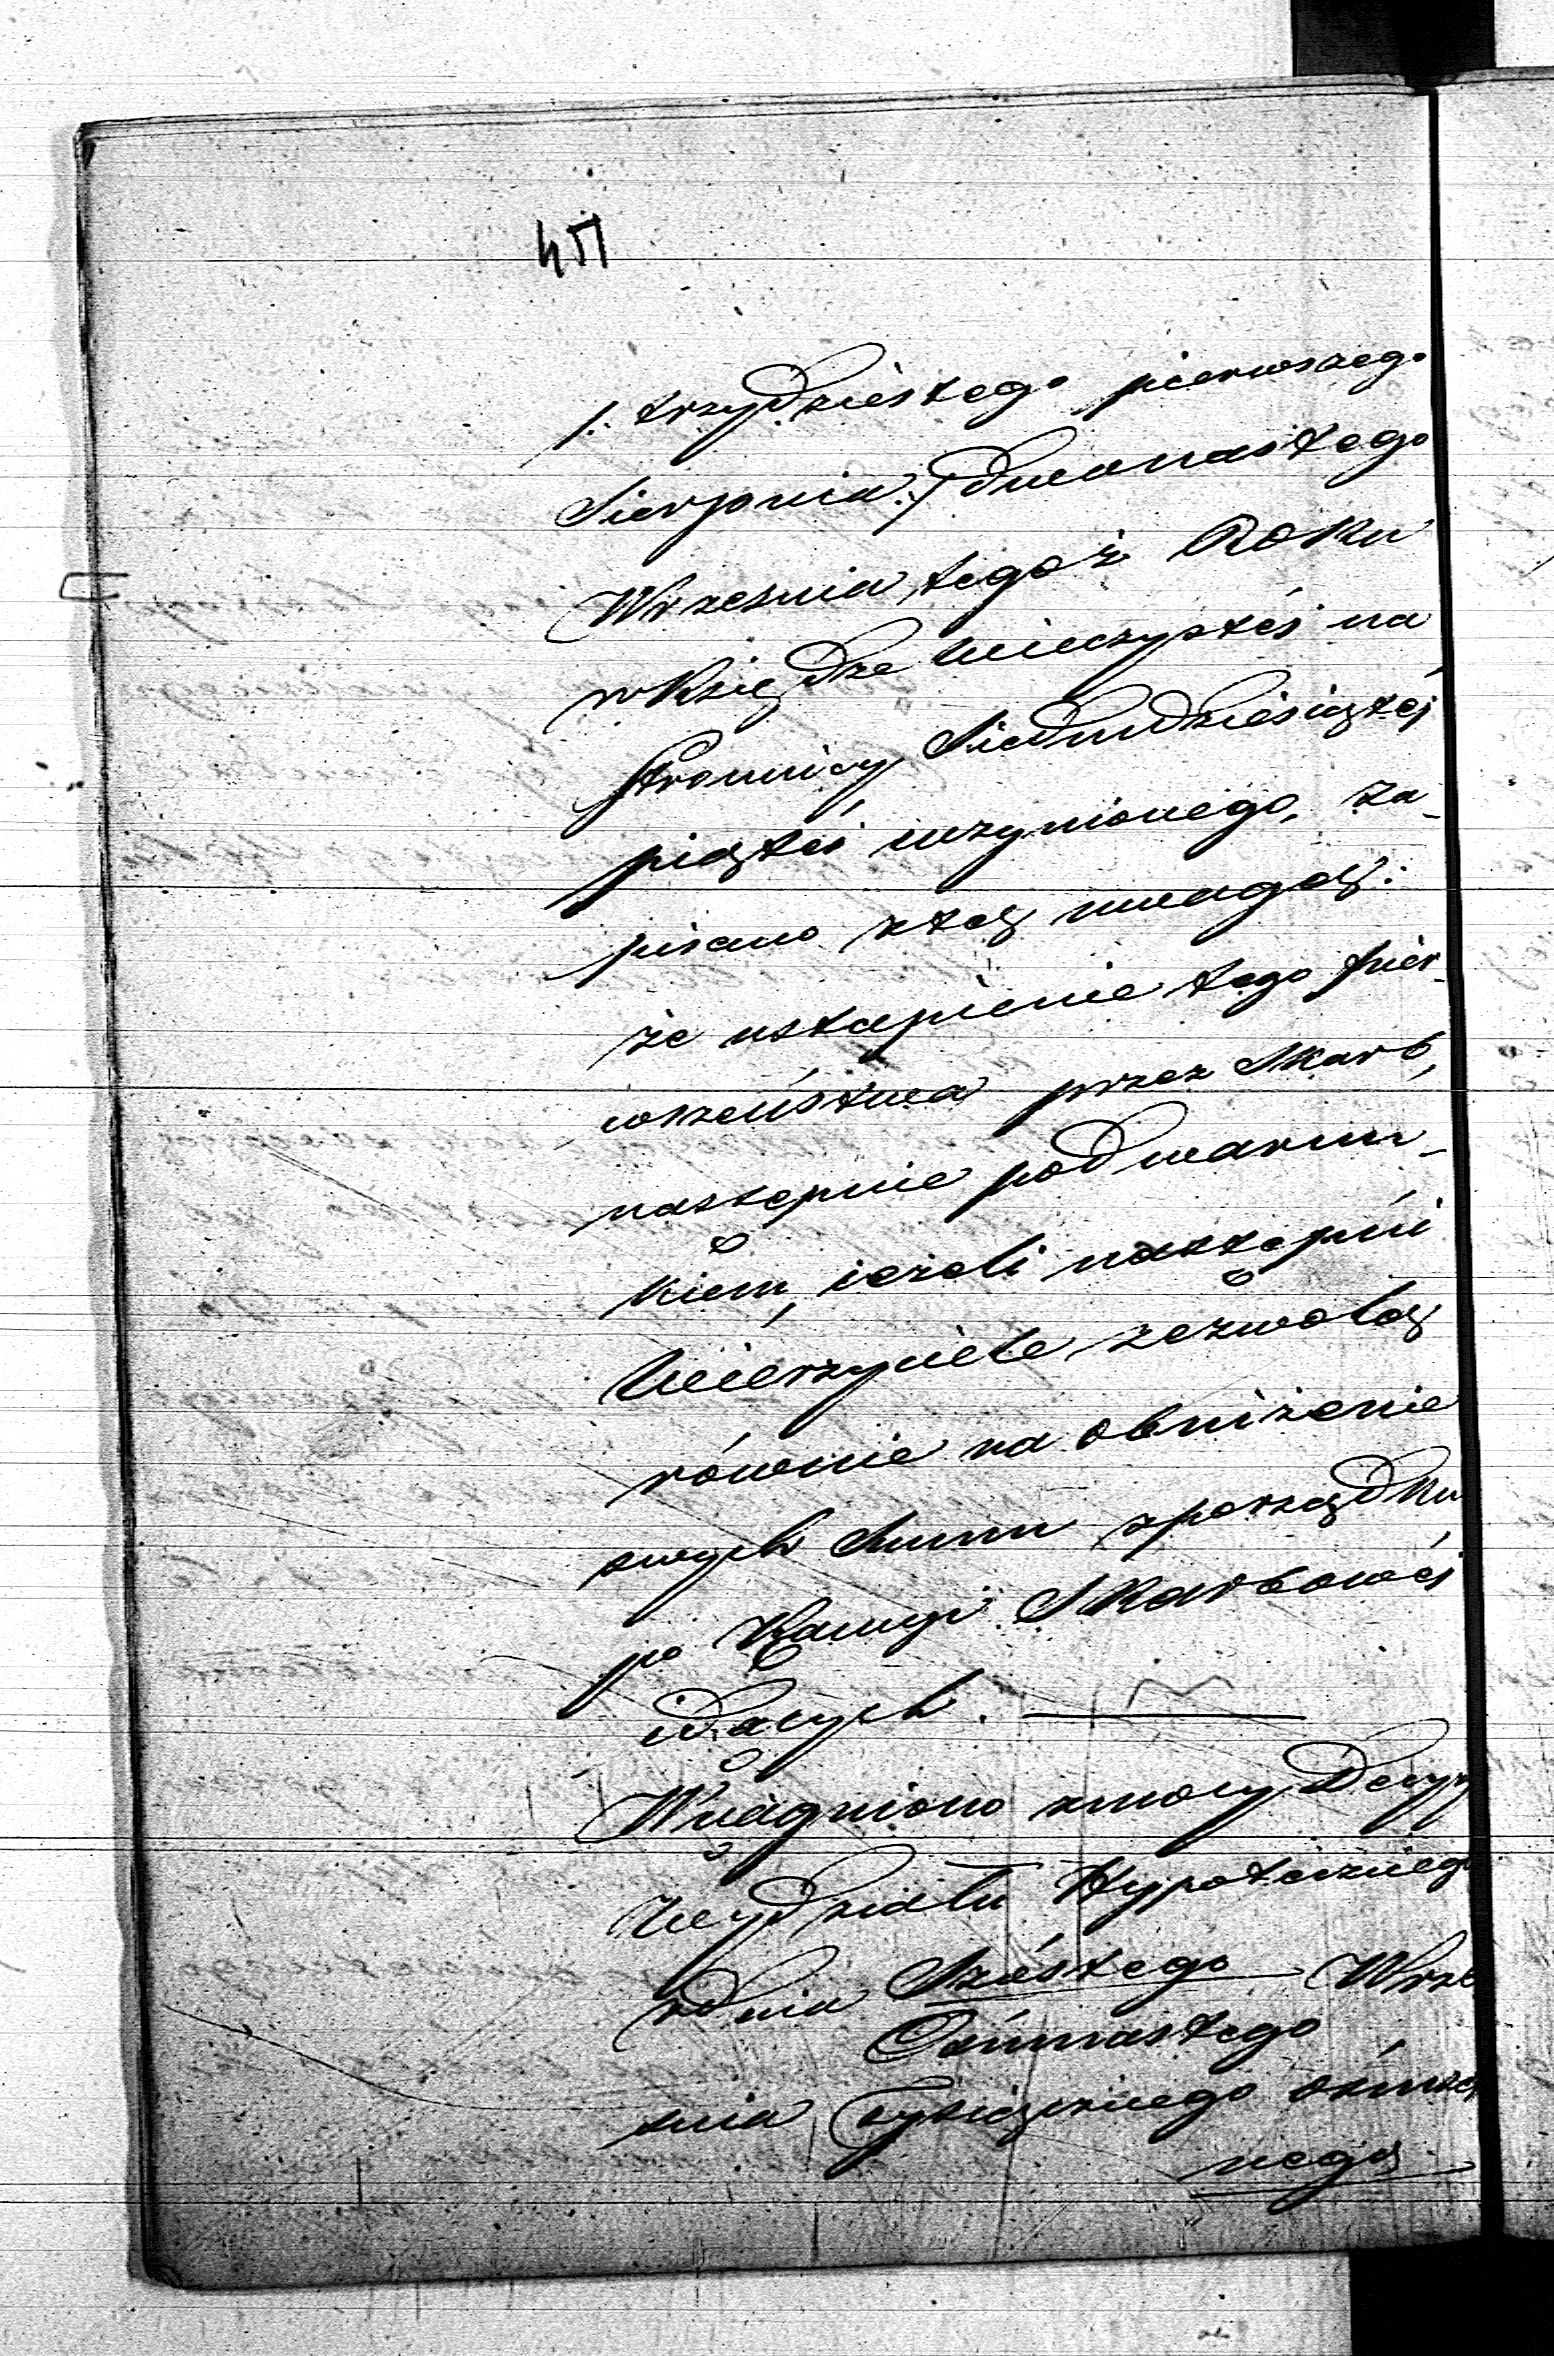 /: trzydziestego pierwszego
Sierpnia :/ dwonastego
Września tegoż Roku
w Księdze wieczystéj na
stronnicy Siedmdziesiątéj
piątéj uczynionego, za-
pisano z tą uwagą:
że ustąpienie tego pier-
wszeństwa przez Skarb,
następuie pod warun-
kiem, ieżeli następni
Wierzyciele zezwolą
równie na obniżenie
swych Summ z porządku
po Kaucyi Skarbowéj
idących.
Wciągniono z mocy Decyz
Wydziału Hypoteczneg
z dnia Szóstego Wrze
Ośmnastego
śnia Tysiącznego ośmse
nego